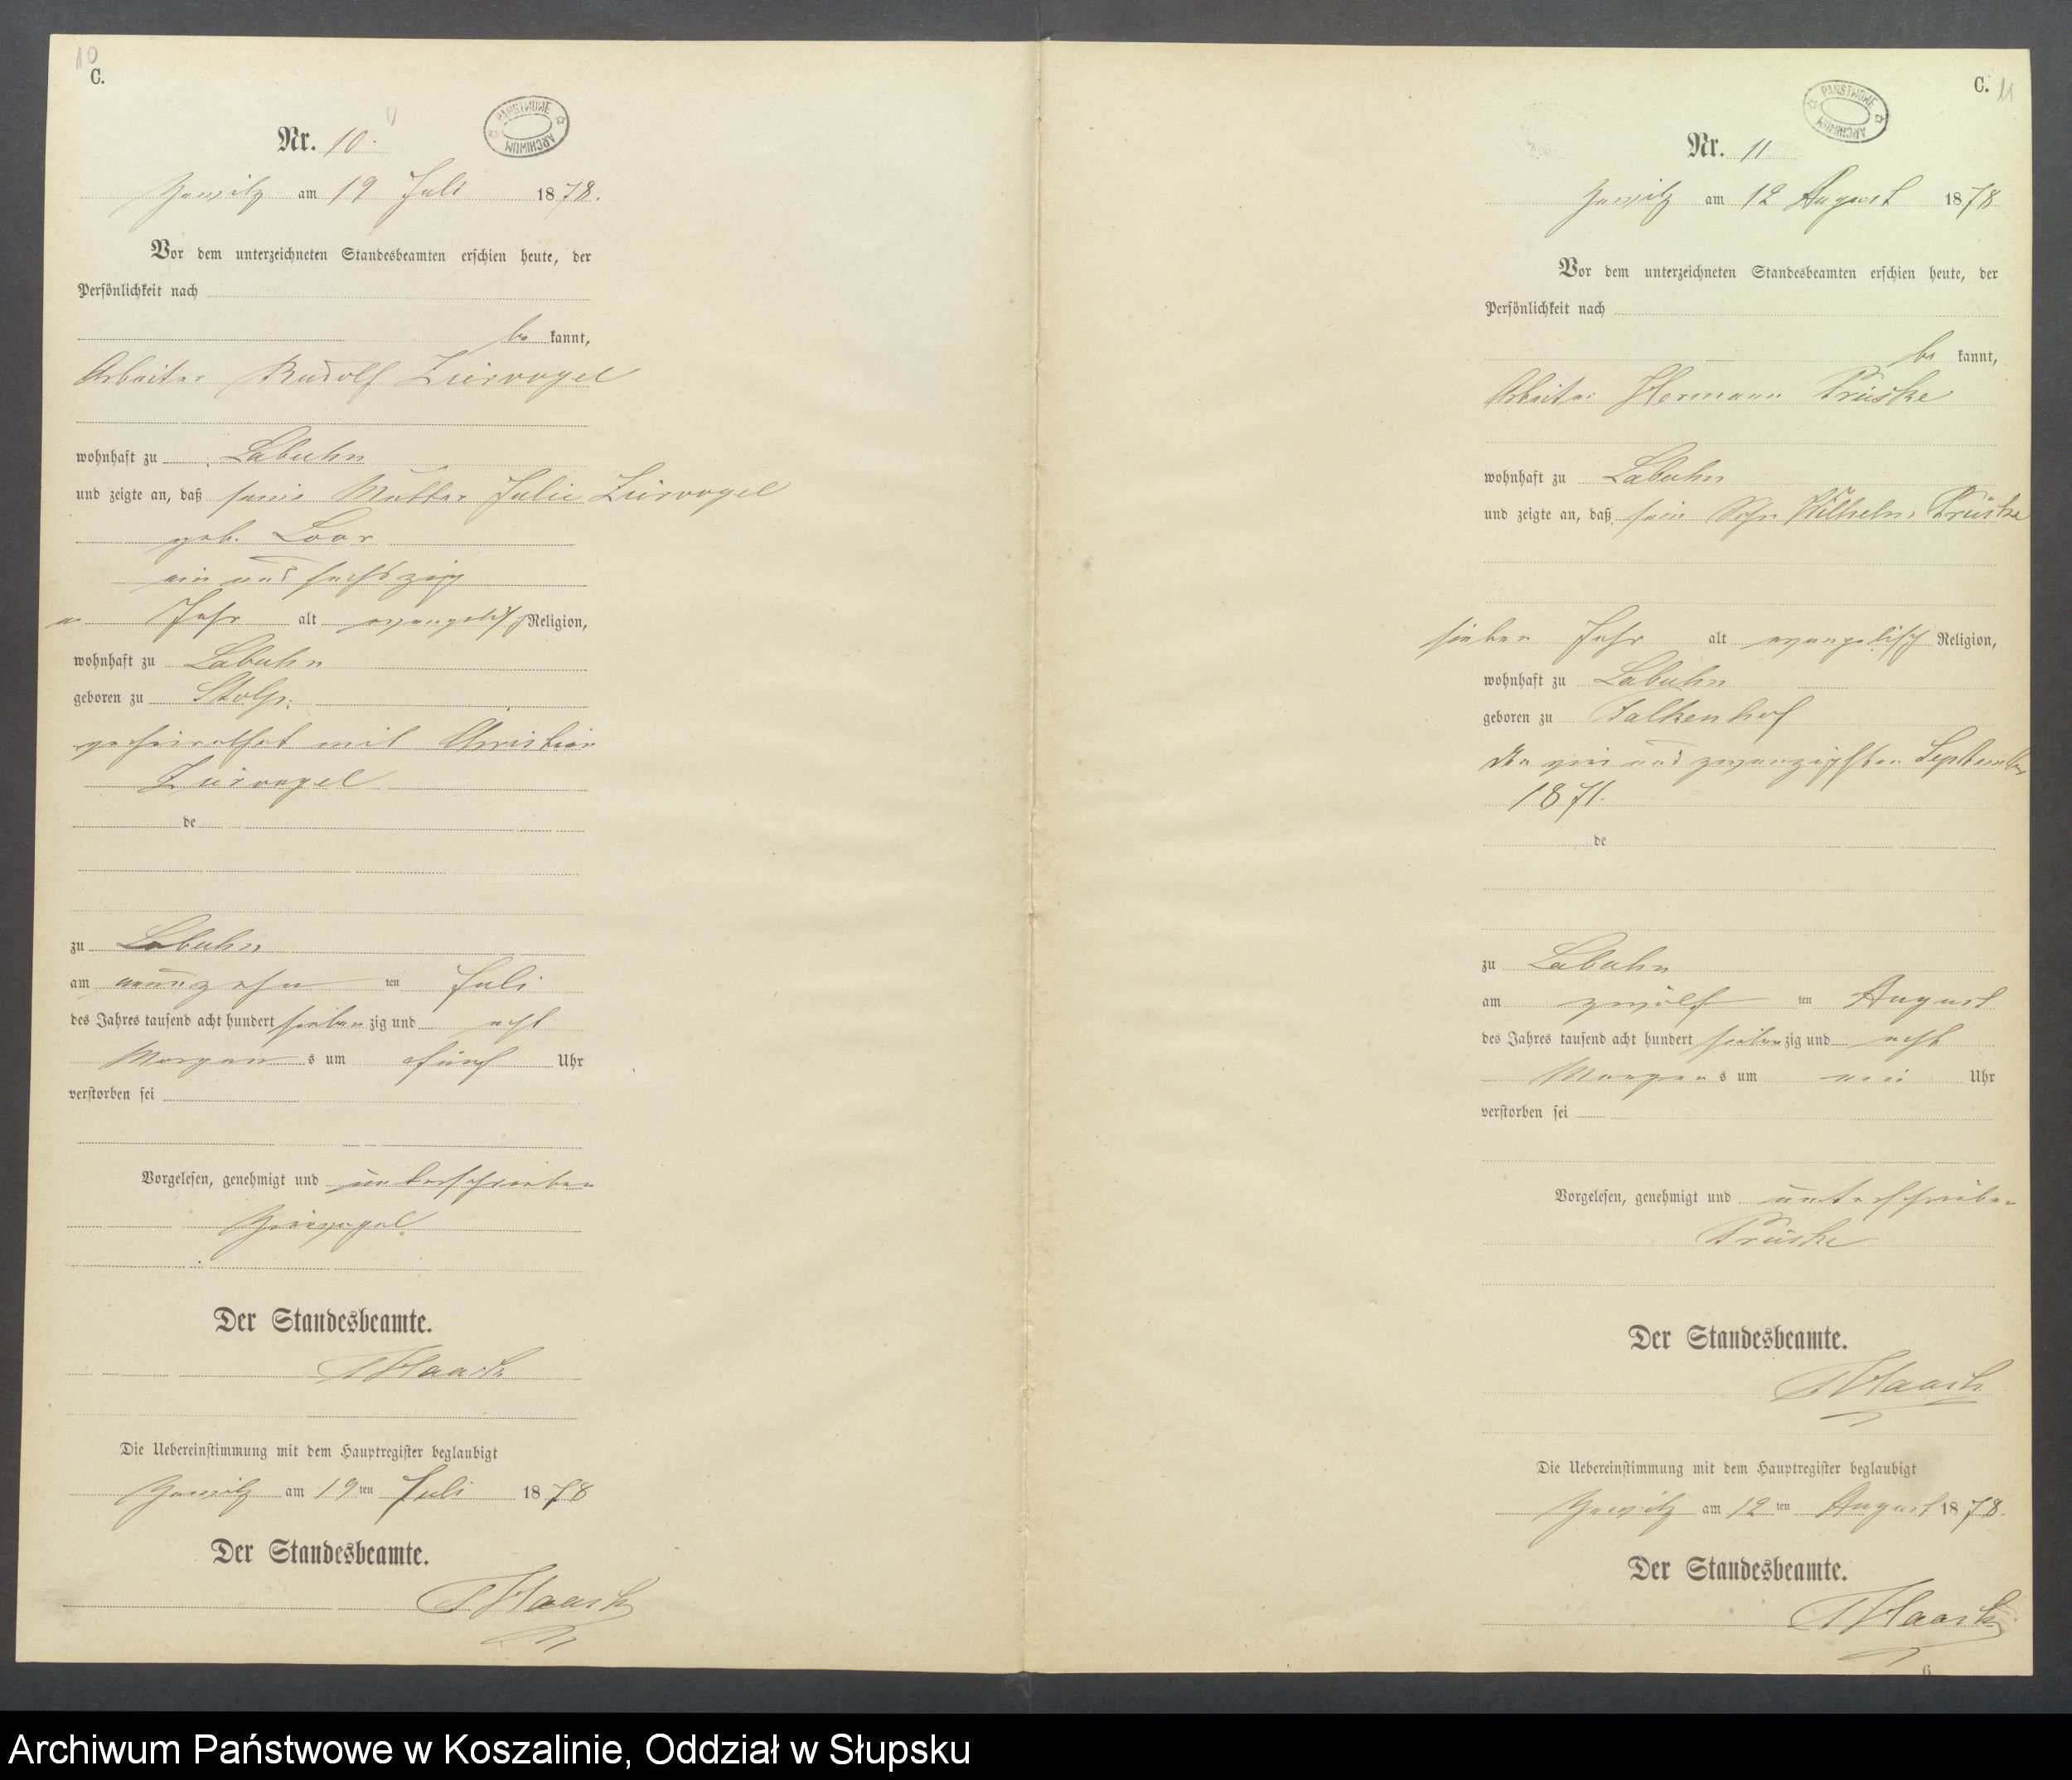 10
C.
PAŃSTWOWE ARCHIWUM
Nr. 10.
am 19 Juli 1878.
Vor dem unterzeichneten Standesbeamten erschien heute, der
Persönlichkeit nach
be kannt,
Arbeiter Rudolf Ziervogel
wohnhaft zu Labuhn
und zeigte an, daß seine Mutter Julie Ziervogel
geb. Loor
ein und sechszig
Jahr alt evangelisch Religion,
wohnhaft zu Labuhn
geboren zu Stolp
geheirathet mit Christian
Ziervogel
de
zu Labuhn
am neunzehn ten Juli
des Jahres tausend acht hundert sieben zig und acht
Morgen s um fünf Uhr
verstorben sei
Vorgelesen, genehmigt und unterschrieben
Ziervogel
Der Standesbeamte.
Haack
Die Uebereinstimmung mit dem Hauptregister beglaubigt
am 19 ten Juli 1878
Der Standesbeamte.
Haack
C. 11
PAŃSTWOWE ARCHIWUM
Nr. 11
am 12 August 1878
Vor dem unterzeichneten Standesbeamten erschien heute, der
Persönlichkeit nach
be kannt,
Arbeiter Hermann Prüske
wohnhaft zu Labuhn
und zeigte an, daß sein Sohn Wilhelm Prüske
sieben Jahr alt evangelisch Religion,
wohnhaft zu Labuhn
geboren zu Falkenhof
den und zwanzigsten September
1871.
de
zu Labuhn
am zwölf ten August
des Jahres tausend acht hundert sieben zig und acht
Morgen s um Uhr
verstorben sei
Vorgelesen, genehmigt und unterschrieben
Prüske
Der Standesbeamte.
Haack
Die Uebereinstimmung mit dem Hauptregister beglaubigt
am 12 ten August 1878.
Der Standesbeamte.
Haack
6
Archiwum Państwowe w Koszalinie, Oddział w Słupsku